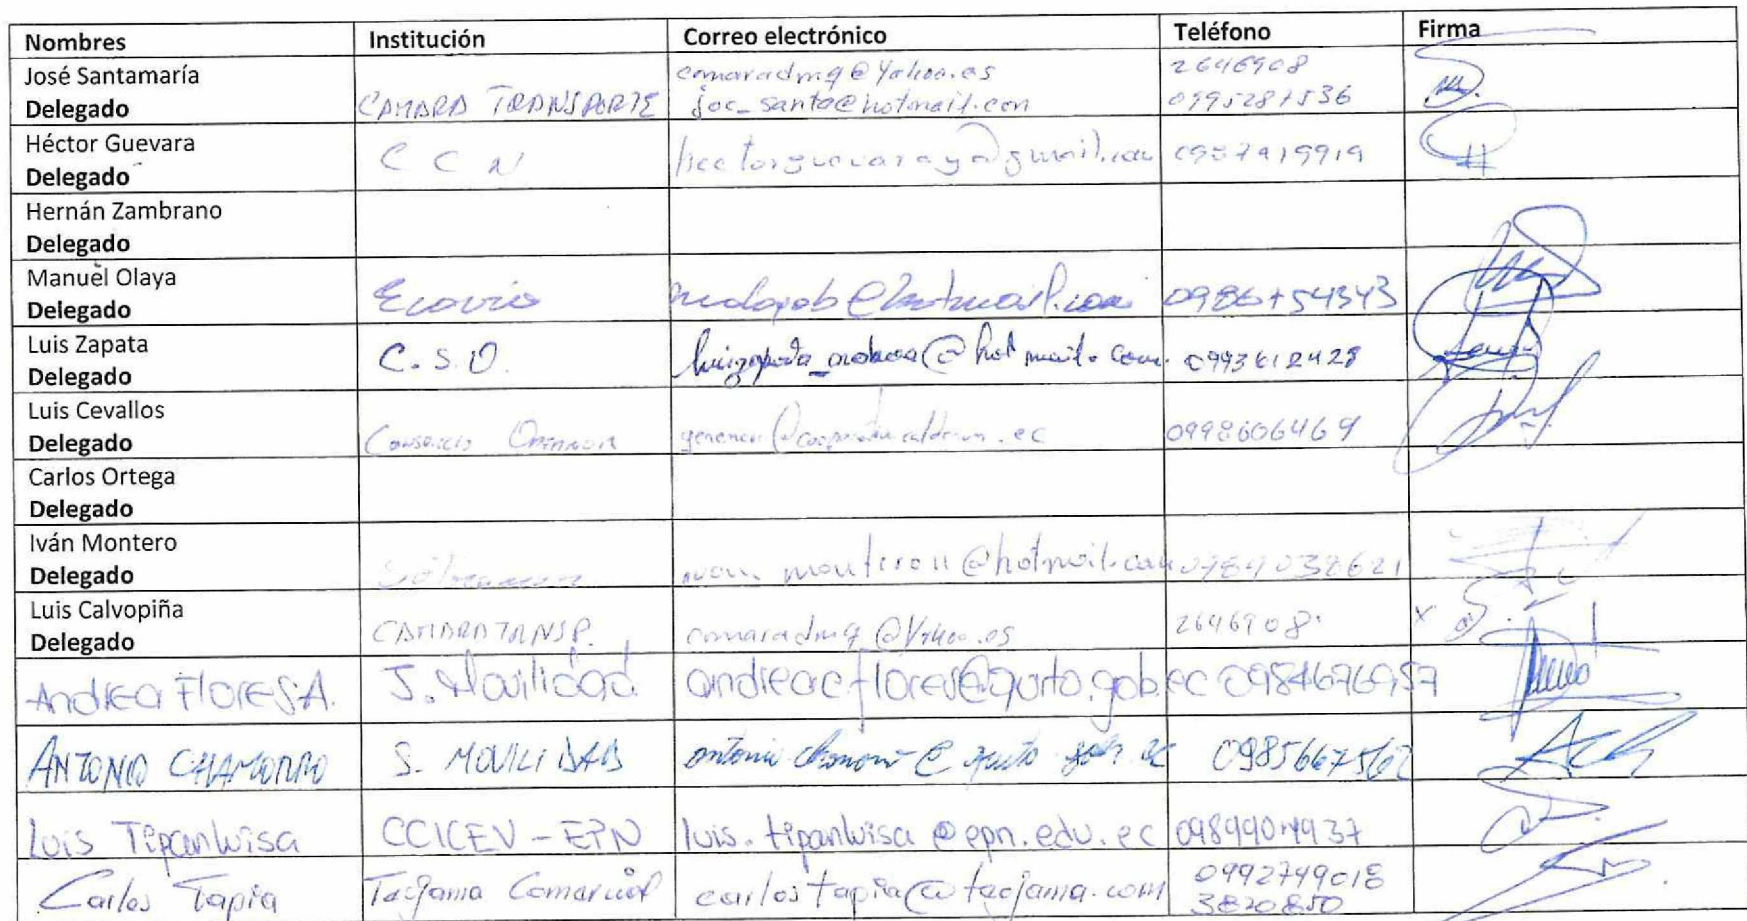 Nombres Institución Correo electrónico Teléfono Firma
José Santamaría camaradmq@Yahoo.es 2646908
Delegado CAMARA TRANSPORTE joc_santa@hotmail.com 0995281536
Héctor Guevara
Delegado C C N hectorguevaray@gmail.com 0987919919
Hernán Zambrano
Delegado
Manuel Olaya
Delegado Ecovia @hotmail.com 0986754343
Luis Zapata
Delegado C.S.O. @hotmail.com 0993612428
Luis Cevallos
Delegado Consorcio 0998606469
Carlos Ortega
Delegado
Iván Montero
Delegado ivan_montero11@hotmail.com
Luis Calvopiña
Delegado CAMARA TRANSP. camaradmq@Yahoo.es 2646908
Andrea Flores A. S. Movilidad andreac.flores@quito.gob.ec 0984676957
ANTONIO CHAMORRO S. MOVILIDAD antonio.chamorro@quito.gob.ec 0985667562
Luis Tipanluisa CCICEV-EPN luis.tipanluisa@epn.edu.ec
Carlos Tapia Tecjama Comercial carlostapia@tecjama.com 0992749018
3820850